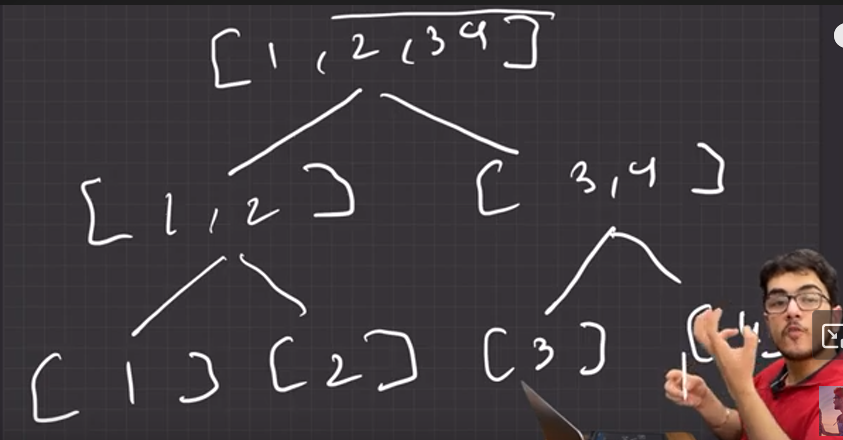 [1,2,3 4]
[1,2] [3,4]
[1] [2] [3] [4]